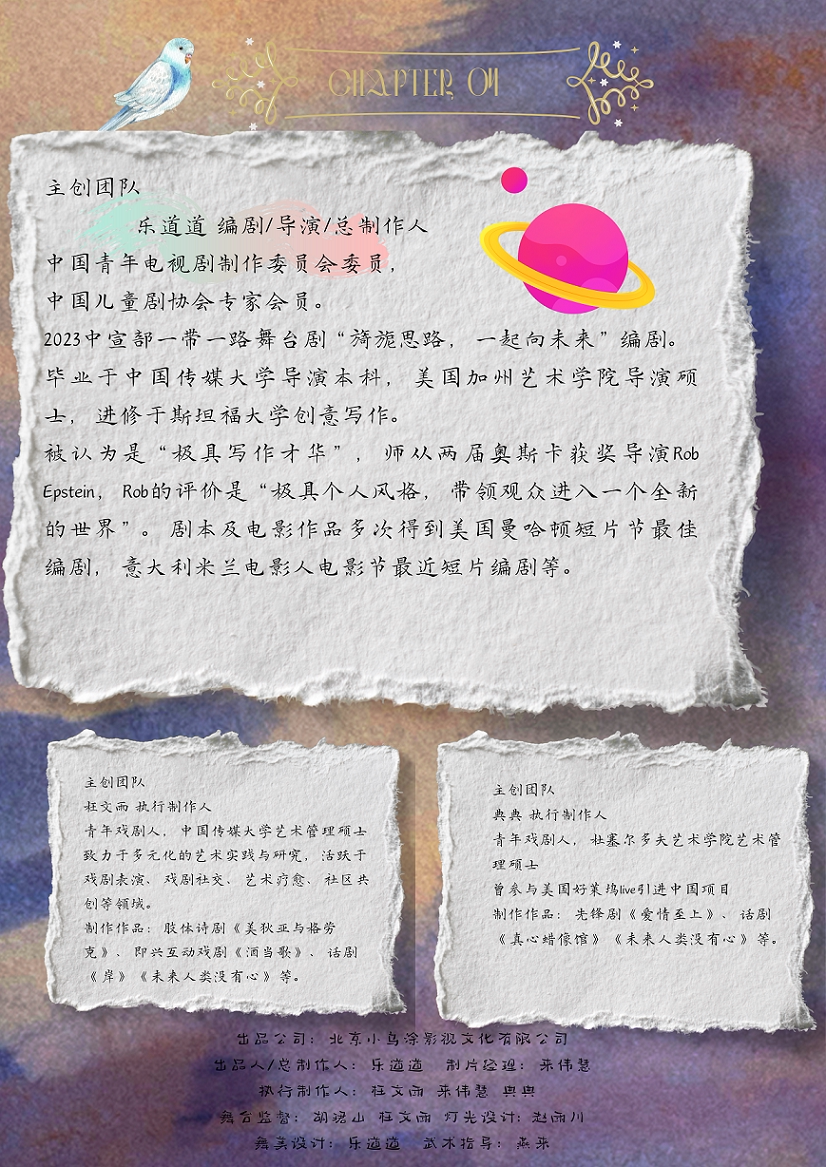 CHAPTER 04
主创团队
乐道道 编剧/导演/总制作人
中国青年电视剧制作委员会委员，
中国儿童剧协会专家会员。
2023中宣部一带一路舞台剧“旖旎思路，一起向未来”编剧。
毕业于中国传媒大学导演本科，美国加州艺术学院导演硕
士，进修于斯坦福大学创意写作。
被认为是“极具写作才华”，师从两届奥斯卡获奖导演Rob
Epstein，Rob的评价是“极具个人风格，带领观众进入一个全新
的世界”。剧本及电影作品多次得到美国曼哈顿短片节最佳
编剧，意大利米兰电影人电影节最近短片编剧等。
主创团队
枉文雨 执行制作人
青年戏剧人，中国传媒大学艺术管理硕士
致力于多元化的艺术实践与研究，活跃于
戏剧表演、戏剧社交、艺术疗愈、社区共
创等领域。
制作作品：肢体诗剧《美狄亚与格劳
克》、即兴互动戏剧《酒当歌》、话剧
《岸》《未来人类没有心》等。
主创团队
典典 执行制作人
青年戏剧人，杜塞尔多夫艺术学院艺术管
理硕士
曾参与美国好莱坞live引进中国项目
制作作品：先锋剧《爱情至上》、话剧
《真心蜡像馆》《未来人类没有心》等。
出品公司：北京小鸟涂影视文化有限公司
出品人/总制作人：乐道道 制片经理：来伟慧
执行制作人：枉文雨 来伟慧 典典
舞台监督：胡 山 枉文雨 灯光设计：赵雨川
舞美设计：乐道道 武术指导：燕来